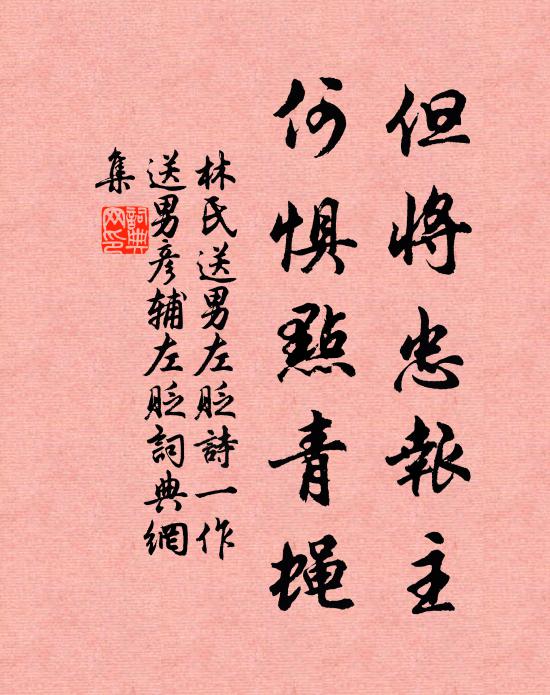 但將忠報主
何懼點青蠅
林氏送男左貶詩一作
送男彦辅左貶詞典網
集
詞典網印